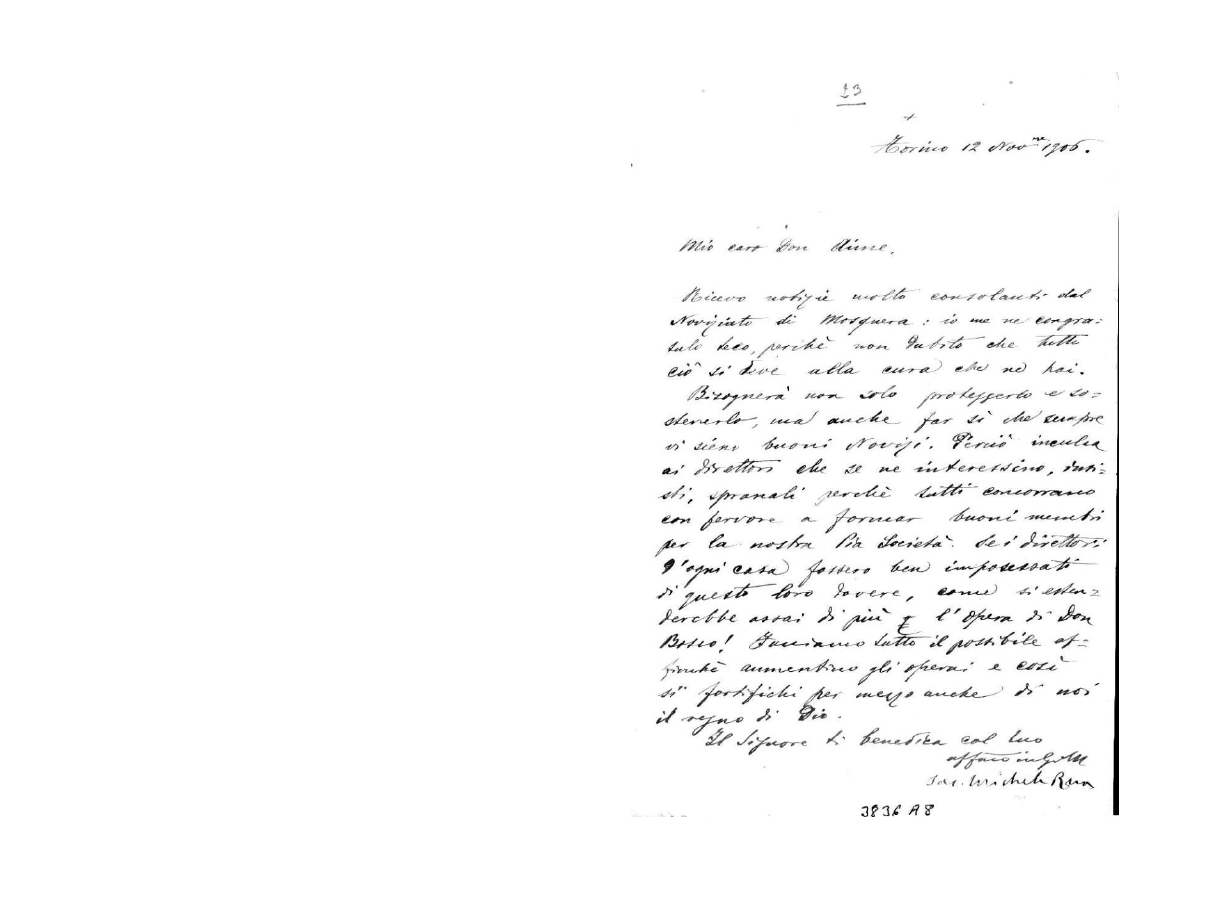 23
+
Torino 12 Nov.re 1906.
Mio caro Don Aime,
Ricevo notizie molto consolanti dal
Noviziato di Mosquera: io me ne congra:
tulo teco, perchè non dubito che tutto
ciò si deve alla cura che ne hai.
Bisognerà non solo proteggerlo e so=
stenerlo, ma anche far sì che sempre
vi sieno buoni Novizi. Perciò inculca
ai direttori che se ne interessino, insi=
sti, spronali perchè tutti concorrano
con fervore a formar buoni membri
per la nostra Pia Società. Se i direttori
d'ogni casa fossero ben impossessati
di questo loro dovere, come si esten=
derebbe assai di più l'opera di Don
Bosco! Facciamo tutto il possibile af=
finchè aumentino gli operai e così
si fortifichi per mezzo anche di noi
il regno di Dio.
Il Signore ti benedica col tuo
affmo in G. M
Sac. Michele Rua
3836 A8